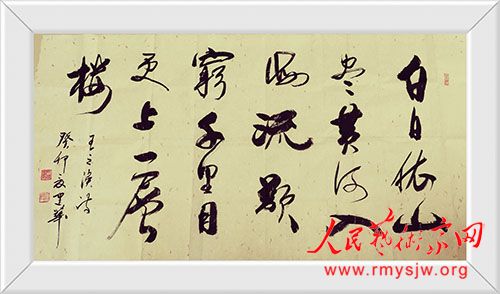 白日依山
尽黄河入
海流欲
窮千里目
更上一層
楼
王之涣诗
癸卯
人民藝術家网
www.rmysjw.org